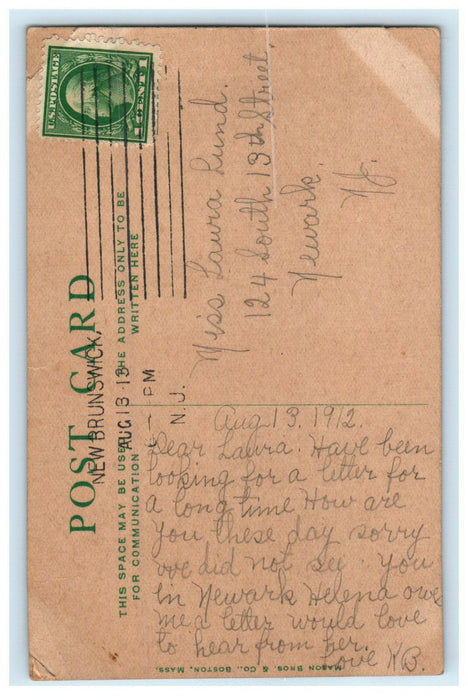 U.S. POSTAGE
1 CENT 1
POST CARD
NEW BRUNSWICK,
AUG 13 13
- PM
N. J.
THIS SPACE MAY BE USED THE ADDRESS ONLY TO BE
FOR COMMUNICATION WRITTEN HERE
Miss Laura Lund.
124 South 13th Street,
Newark.
N.J.
Aug 13. 1912.
Dear Laura. Have been
looking for a letter for
a long time How are
you these day sorry
we did not see you
In Newark Helena owe
me a letter would love
to hear from her.
Love KB.
MASON BROS. & CO., BOSTON, MASS.